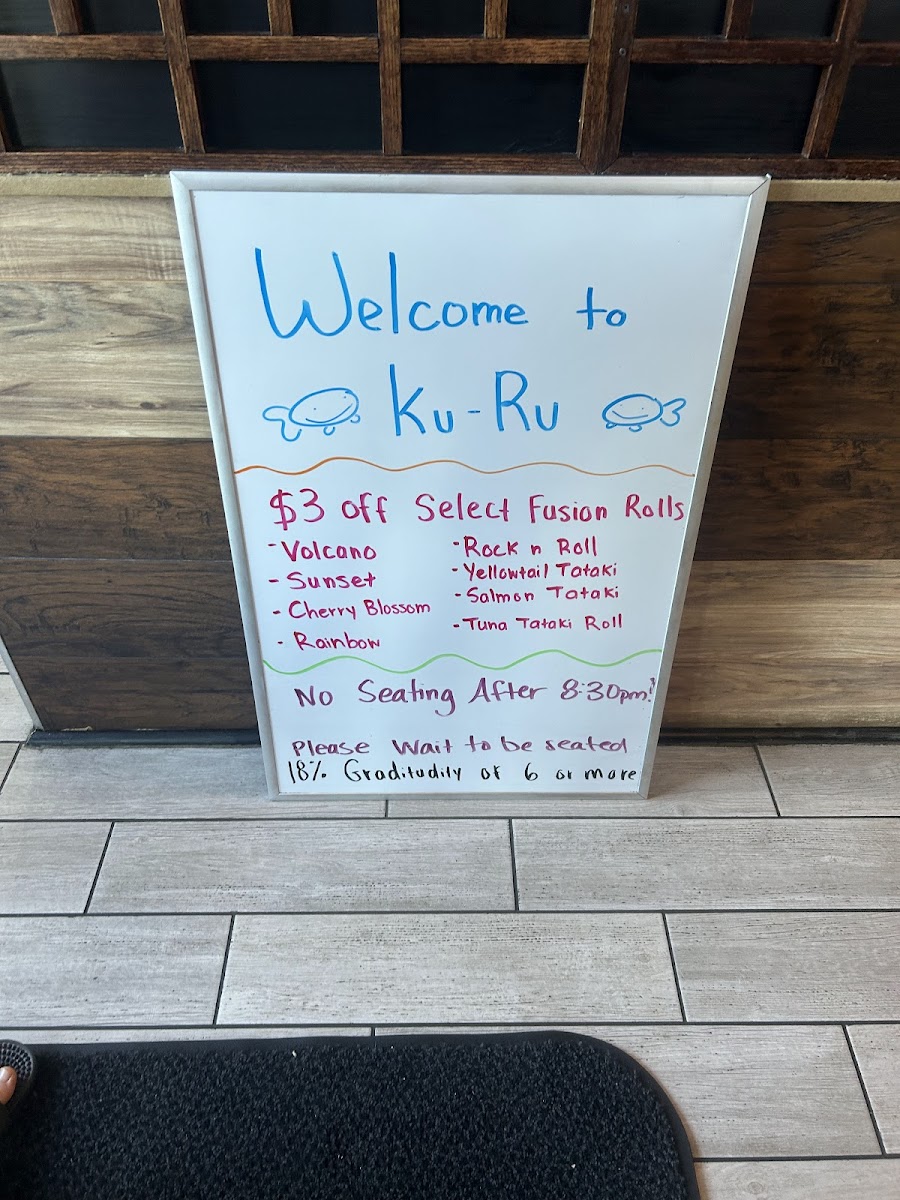 Welcome to
Ku-Ru
$3 off Select Fusion Rolls
- Volcano
- Sunset
- Cherry Blossom
- Rainbow
- Rock n Roll
- Yellowtail Tataki
- Salmon Tataki
- Tuna Tataki Roll
No Seating After 8:30pm!
Please Wait to be seated
18% Graditudily of 6 or more